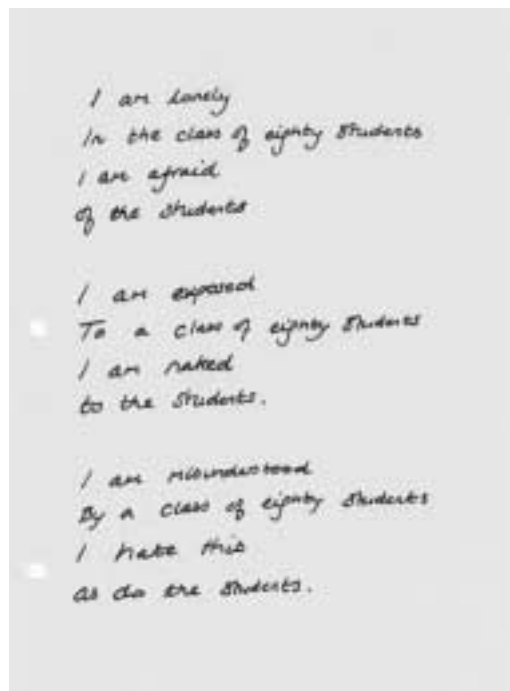 I am lonely
In the class of eighty students
I am afraid
of the students
I am exposed
To a class of eighty students
I am naked
to the students.
I am misunderstood
By a class of eighty students
I hate this
as do the students.